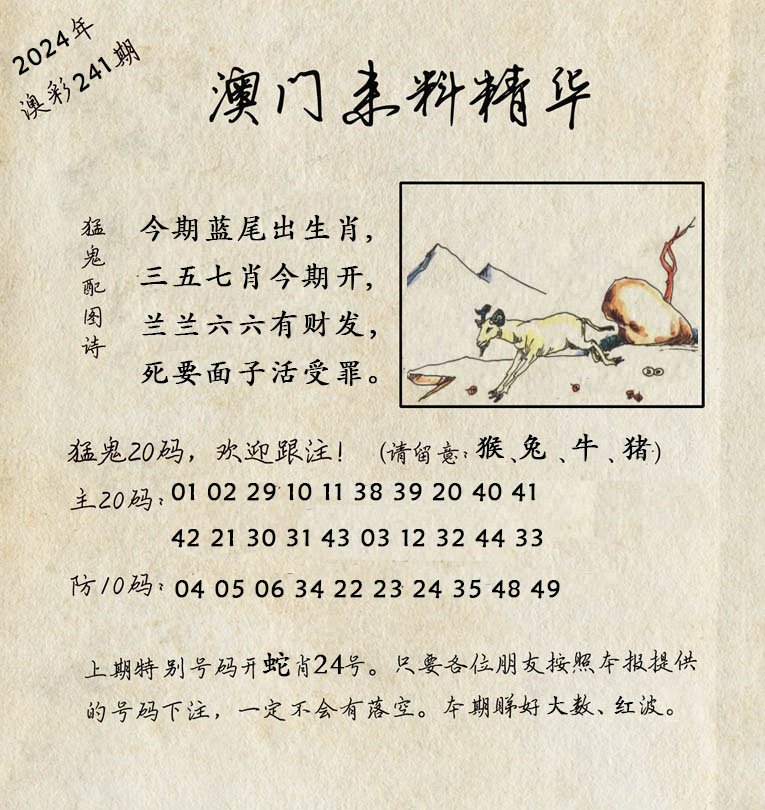 2024年
澳彩241期
澳门来料精华
猛鬼配图诗
今期蓝尾出生肖，
三五七肖今期开，
兰兰六六有财发，
死要面子活受罪。
猛鬼20码，欢迎跟注！（请留意：猴、兔、牛、猪）
主20码：01 02 29 10 11 38 39 20 40 41
42 21 30 31 43 03 12 32 44 33
防10码：04 05 06 34 22 23 24 35 48 49
上期特别号码开蛇肖24号。只要各位朋友按照本报提供
的号码下注，一定不会有落空。本期睇好大数、红波。